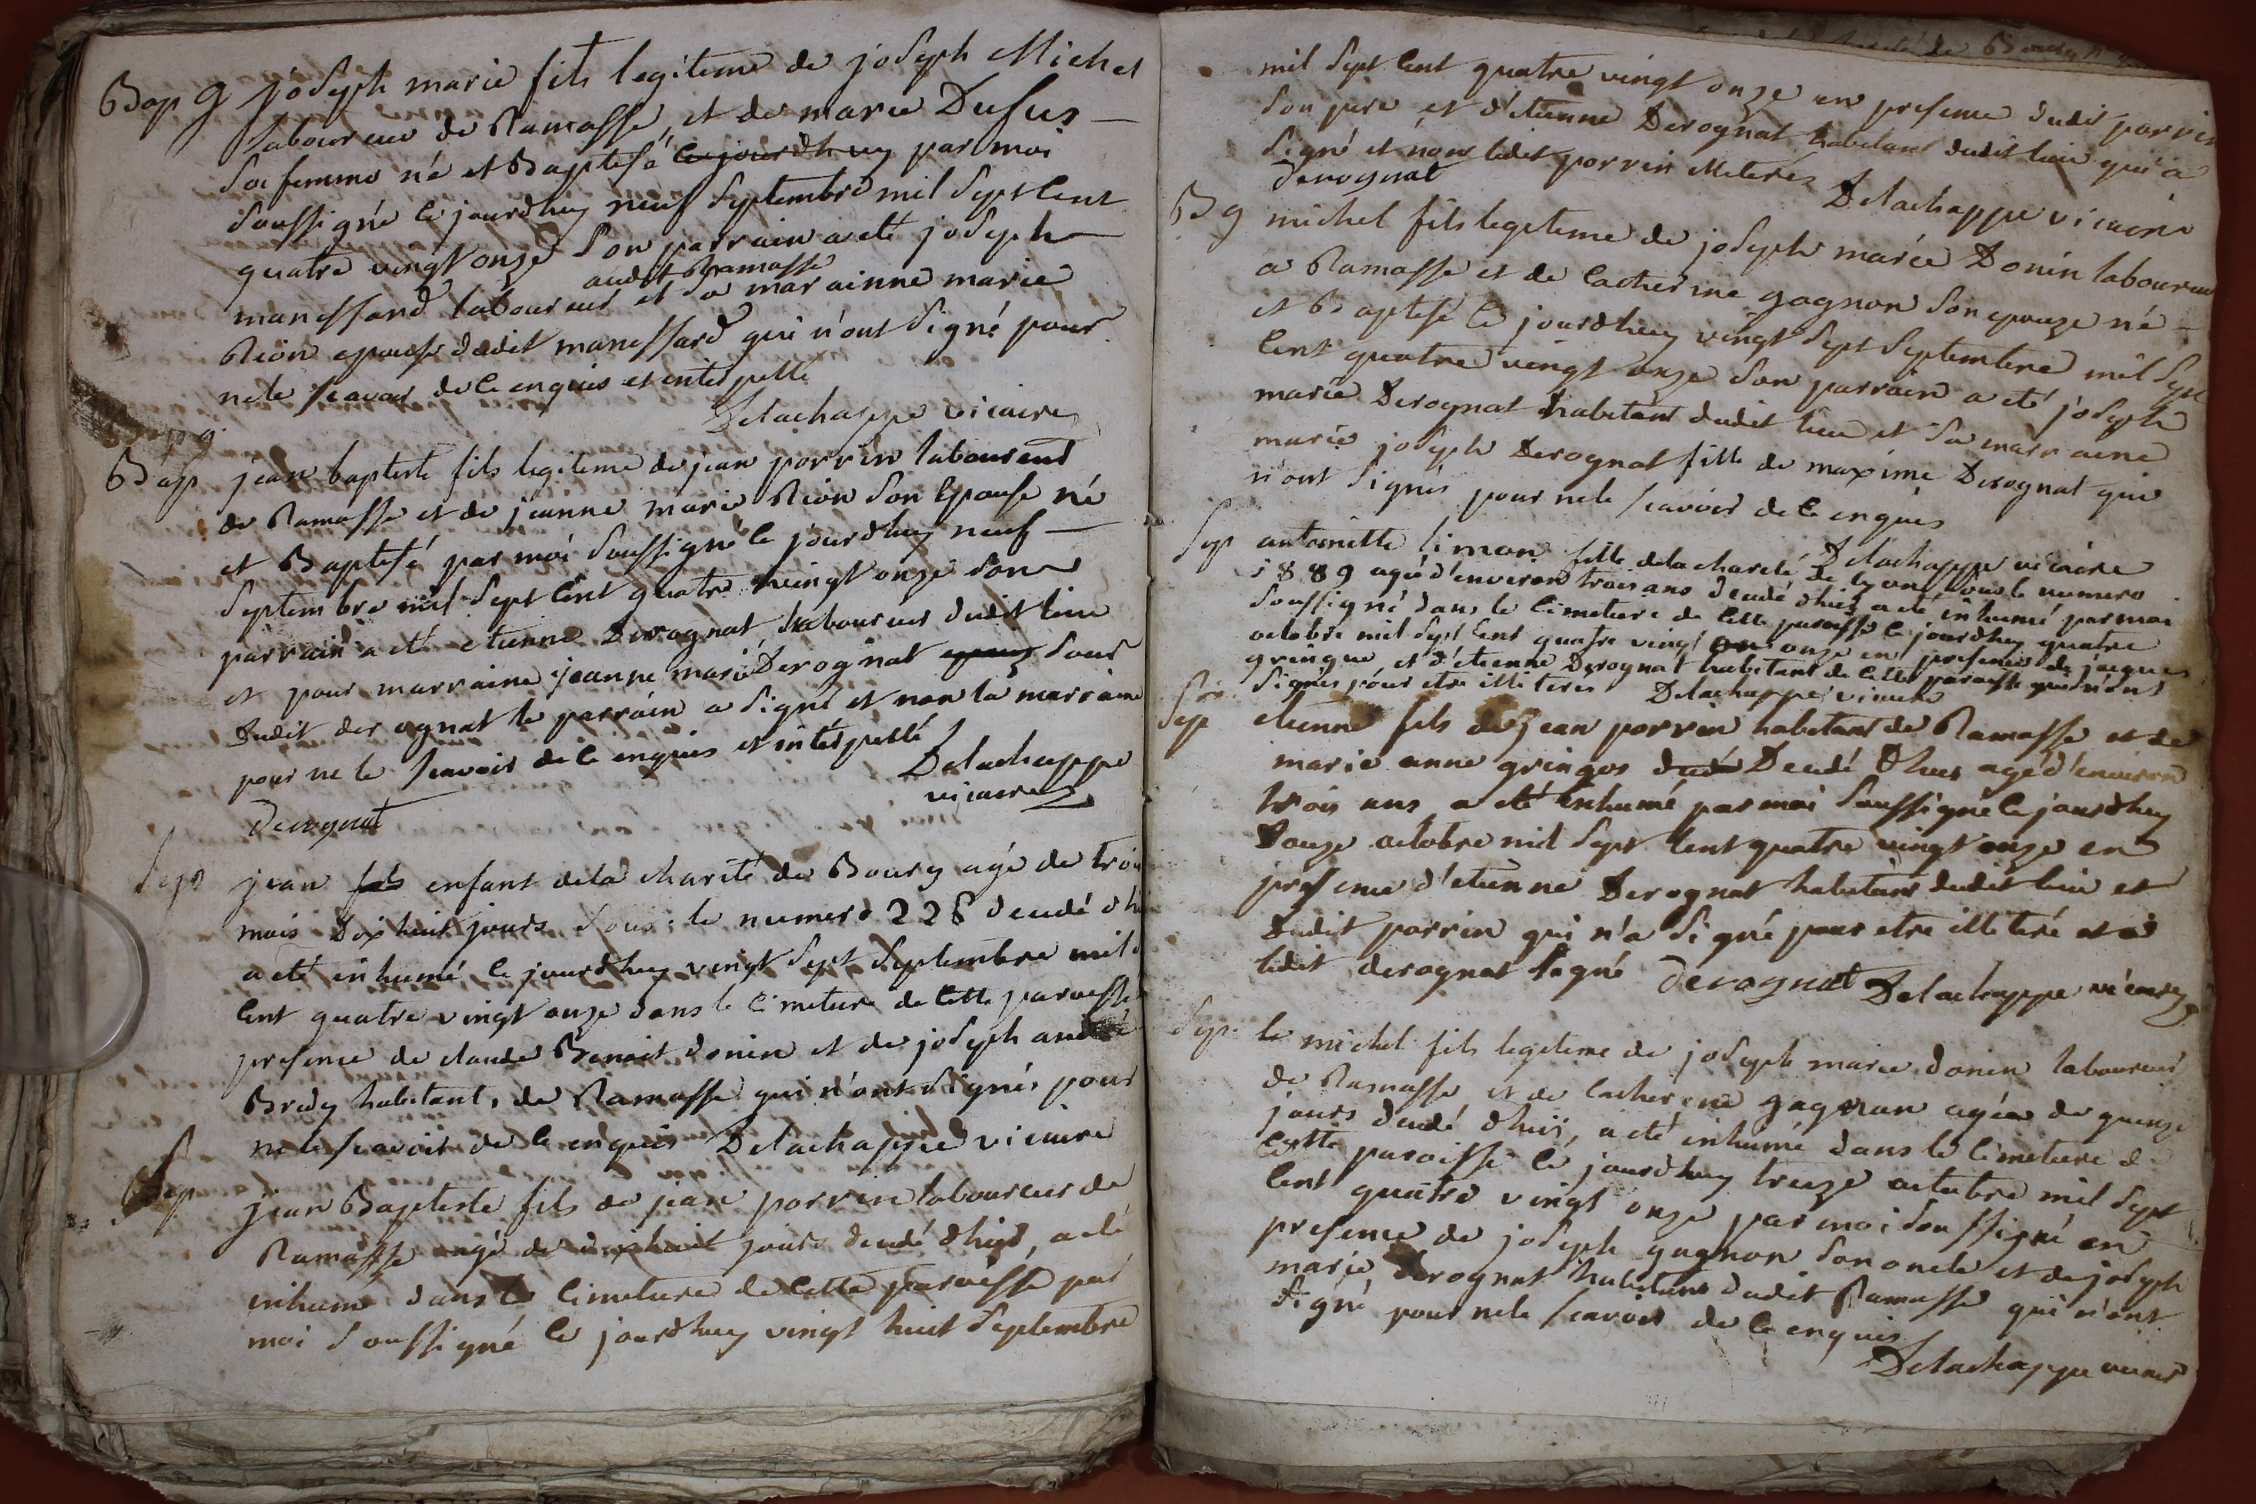 Bap g joseph marie fils legiteme de joseph Michel
laboureur de Ramasse, et de marie Dufus
sa femme né et Baptisé ce jourdhuy par moi
soussigné ce jourdhuy neuf septembre mil sept cent
quatre vingt onze son parrain a eté joseph
audit Ramasse
manissard laboureur et sa marainne marie
Rion epouse dudit manissard qui n'ont signé pour
ne le scavoir de ce enquis et interpellé
Delachappe vicaire
Bap jean baptiste fils legiteme de jean porrin laboureur
de Ramasse et de jeanne marie Rion son Epouse né
et Baptisé par moi soussigné ce jourdhuy neuf
septembre mil sept cent quatre vingt onze son
parrain a eté etienne Derognat laboureur dudit lieu
et pour marraine jeanne marie Derognat sœur
dudit derognat le parrain a signé et non la marraine
pour ne le scavoir de ce enquis et interpellé
Delachappe
vicaire
Derognat
Sep jean fils enfant de la charité de Bourg agé de trois
mois Dix huit jours sous le numero 228 decedé dhier
a eté inhumé ce jourdhuy vingt sept septembre mil
cent quatre vingt onze dans le cimeture de cette paroisse
presence de claude Benoit donin et de joseph andré
Bredy habitants de Ramasse qui n'ont signés pour
ne le scavoir de ce enquis Delachappe vicaire
Sep jean Baptiste fils de jean porrin laboureur de
Ramasse agé de dixhuit jours decedé dhier, a eté
inhumé dans le cimeture de cette paroisse par
moi soussigné ce jourdhuy vingt huit septembre
mil sept cent quatre vingt onze en presence dudit porrin
son pere et d'etienne Derognat habitant dudit lieu qui a
signé et non ledit porrin illiterés
derognat
Delachappe vicaire
B g michel fils legiteme de joseph marie Donin laboureur
a Ramasse et de Catherine gagnon son epouze né
et Baptisé ce jourdhuy vingt sept septembre mil sept
cent quatre vingt onze son parrain a eté joseph
marie Derognat habitant dudit lieu et sa marraine
marie joseph Derognat fille de maxime Derognat qui
n'ont signés pour ne le scavoir de ce enquis
Delachappe vicaire
Sep antoinette simon fille de la charité de lyon sous le numero
1889 agé d'environ trois ans decedé dhier a eté inhumé par moi
soussigné dans le cimeture de cette paroisse ce jourdhuy quatre
octobre mil sept cent quatre vingt onze en presence de jacques
gringue, et d'etienne Derognat habitant de cette paroisse qui n'ont
signés pour etre illiterés Delachappe vicaire
Sep etienne fils de jean porrin habitant de Ramasse et de
marie anne gringos Decedé Dhier agé d'environ
trois ans a eté inhumé par moi soussigné ce jourdhuy
Douze octobre mil sept cent quatre vingt onze en
presence d'etienne Derognat habitant dudit lieu et
dudit porrin qui n'a signé pour etre illiteré et a
ledit derognat signé Derognat Delachappe vicaire
Sep. le michel fils legiteme de joseph marie donin laboureur
de Ramasse et de catherine gagnon agée de quinze
jours decedé dhier, a eté inhumé dans le cimeture de
cette paroisse ce jourdhuy treize octobre mil sept
cent quatre vingt onze par moi soussigné en
presence de joseph gagnon son oncle et de joseph
marie Derognat habitans dudit Ramasse qui n'ont
signé pour ne le scavoir de ce enquis
Delachappe vicaire